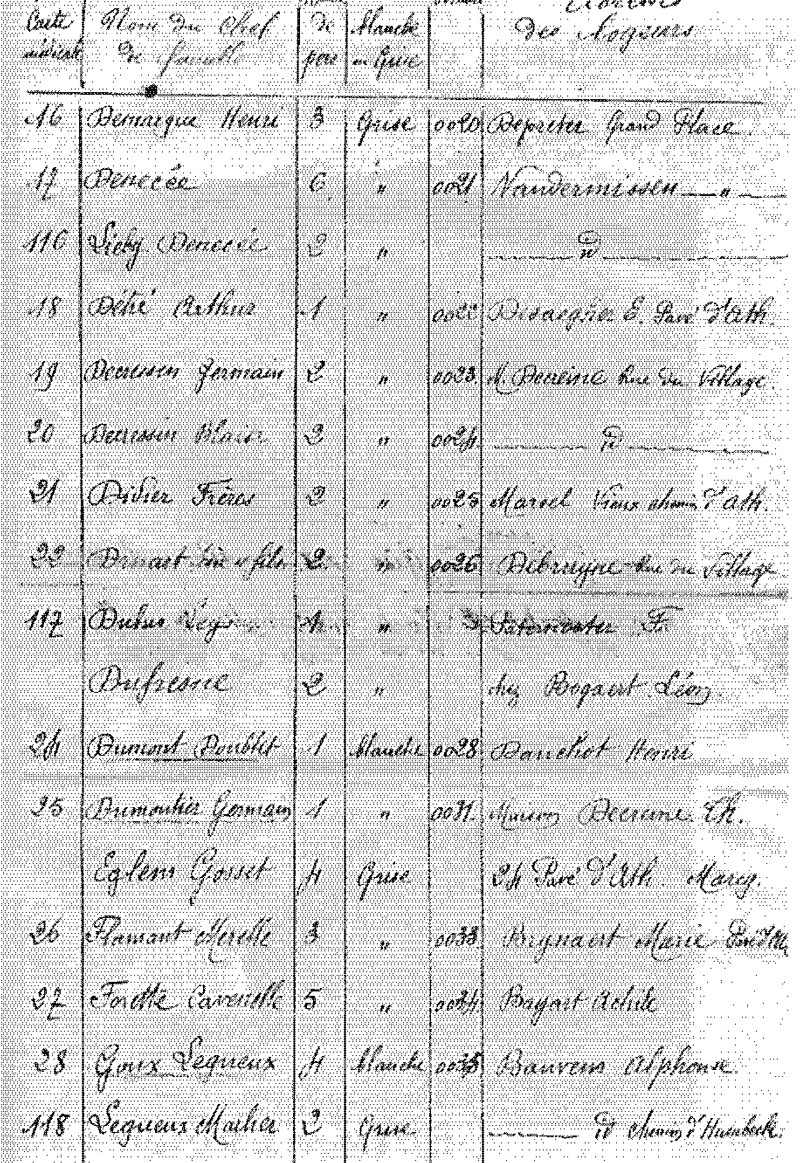 Carte Nom du Chef de Blanche
médicale de famille pers ou Grise des Logeurs
16 Demarque Henri 3 Grise 0020 Depreter Grand Place.
17 Denecée 6 " 0021 Vandermissen — " —
116 Denecée 2 " id
18 Détré Arthur 1 " 0022 E. Pavé d'Ath.
19 Germain 2 " 0023 M. Rue du Village.
20 2 " 0024 id
21 Didier Frères 2 " 0025 Marsel Vieux chemin d'Ath.
22 Dinart père et fils 2 " 0026 Debruyne Rue du Village
117 Dubus 1 " F.
Dufresne 2 " chez Bogaert Léon.
24 Dumont Doublet 1 blanche 0028 Danchot Henri
25 Dumoutier Germain 1 " 0031 Maison Th.
Eglem Gosset 4 Grise 24 Pavé d'Ath Marcq.
26 Flamant 3 " 0033 Marie Pavé d'Ath
27 5 " 0034 Bayart Achile
28 Goux Lequeux 4 blanche 0035 Bauvens Alphonse
118 Lequeux 2 Grise id chemin d'Humbeek.